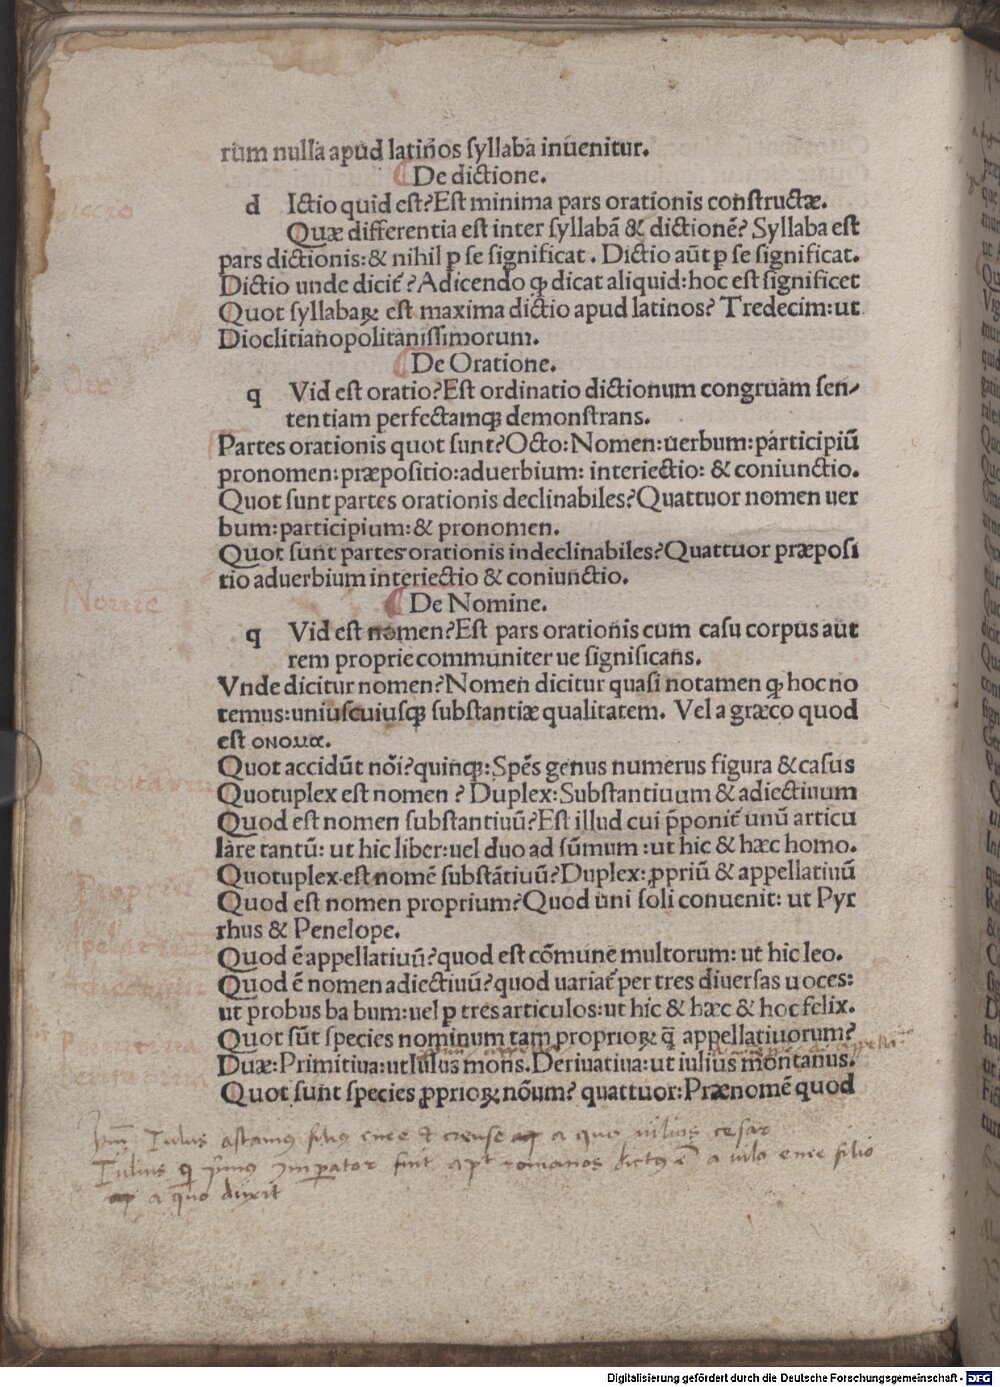 rum nulla apud latinos ſyllaba inuenitur.
De dictione.
d Ictio quid eſt?Eſt minima pars orationis conſtructæ.
Quæ differentia eſt inter ſyllabã & dictionẽ? Syllaba eſt
pars dictionis:& nihil ꝑ ſe ſignificat. Dictio aũt ꝑ ſe ſignificat.
Dictio unde dicit̃?A dicendo ꝙ dicat aliquid:hoc eſt ſignificet
Quot ſyllabaꝝ eſt maxima dictio apud latinos? Tredecim:ut
Dioclitianopolitaniſſimorum.
De Oratione.
q Vid eſt oratio?Eſt ordinatio dictionum congruam ſen⸗
tentiam perfectamqꝫ demonſtrans.
Partes orationis quot ſunt?Octo:Nomen:uerbum:participiũ
pronomen:præpoſitio:aduerbium: interiectio: & coniunctio.
Quot ſunt partes orationis declinabiles?Quattuor nomen uer
bum:participium:& pronomen.
Quot ſunt partes orationis indeclinabiles?Quattuor præpoſi
tio aduerbium interiectio & coniunctio.
Nomẽ
De Nomine.
q Vid eſt nomen?Eſt pars orationis cum caſu corpus aut
rem proprie communiter ue ſignificans.
Vnde dicitur nomen?Nomen dicitur quaſi notamen ꝙ hoc no
temus:uniuſcuiuſqꝫ ſubſtantiæ qualitatem. Vel a græco quod
eſt ονομα.
Quot accidũt nõi?quinqꝫ:Spẽs genus numerus figura & caſus
Quotuplex eſt nomen ? Duplex:Subſtantiuum & adiectiuum
Quod eſt nomen ſubſtantiuũ?Eſt illud cui p̃ponit̃ unũ articu
lare tantũ: ut hic liber:uel duo ad ſũmum :ut hic & hæc homo.
Quotuplex eſt nomẽ ſubſtãtiuũ?Duplex:ꝓpriũ & appellatiuũ
Quod eſt nomen proprium?Quod uni ſoli conuenit: ut Pyr
rhus & Penelope.
Quod ẽ appellatiuũ?quod eſt cõmune multorum: ut hic leo.
Quod ẽ nomen adiectiuũ?quod uariat̃ per tres diuerſas uoces:
ut probus ba bum:uel ꝑ tres articulos:ut hic & hæc & hoc felix.
Quot ſũt ſpecies nominum tam proprioꝝ q̃ appellatiuorum?
Duæ:Primitiua:ut Iulus mons.Deriuatiua:ut iulius montanus.
Quot ſunt ſpecies ꝓprioꝝ nõum? quattuor:Prænomẽ quod
Iulus aſtanius filius enee & creuſe a quo iulius ceſar
Iulius q̃ primus Imperator fuit apt̃ romanos dictus ẽ a iulo enee filio
a quo dixit
Digitalisierung gefördert durch die Deutsche Forschungsgemeinschaft - DFG